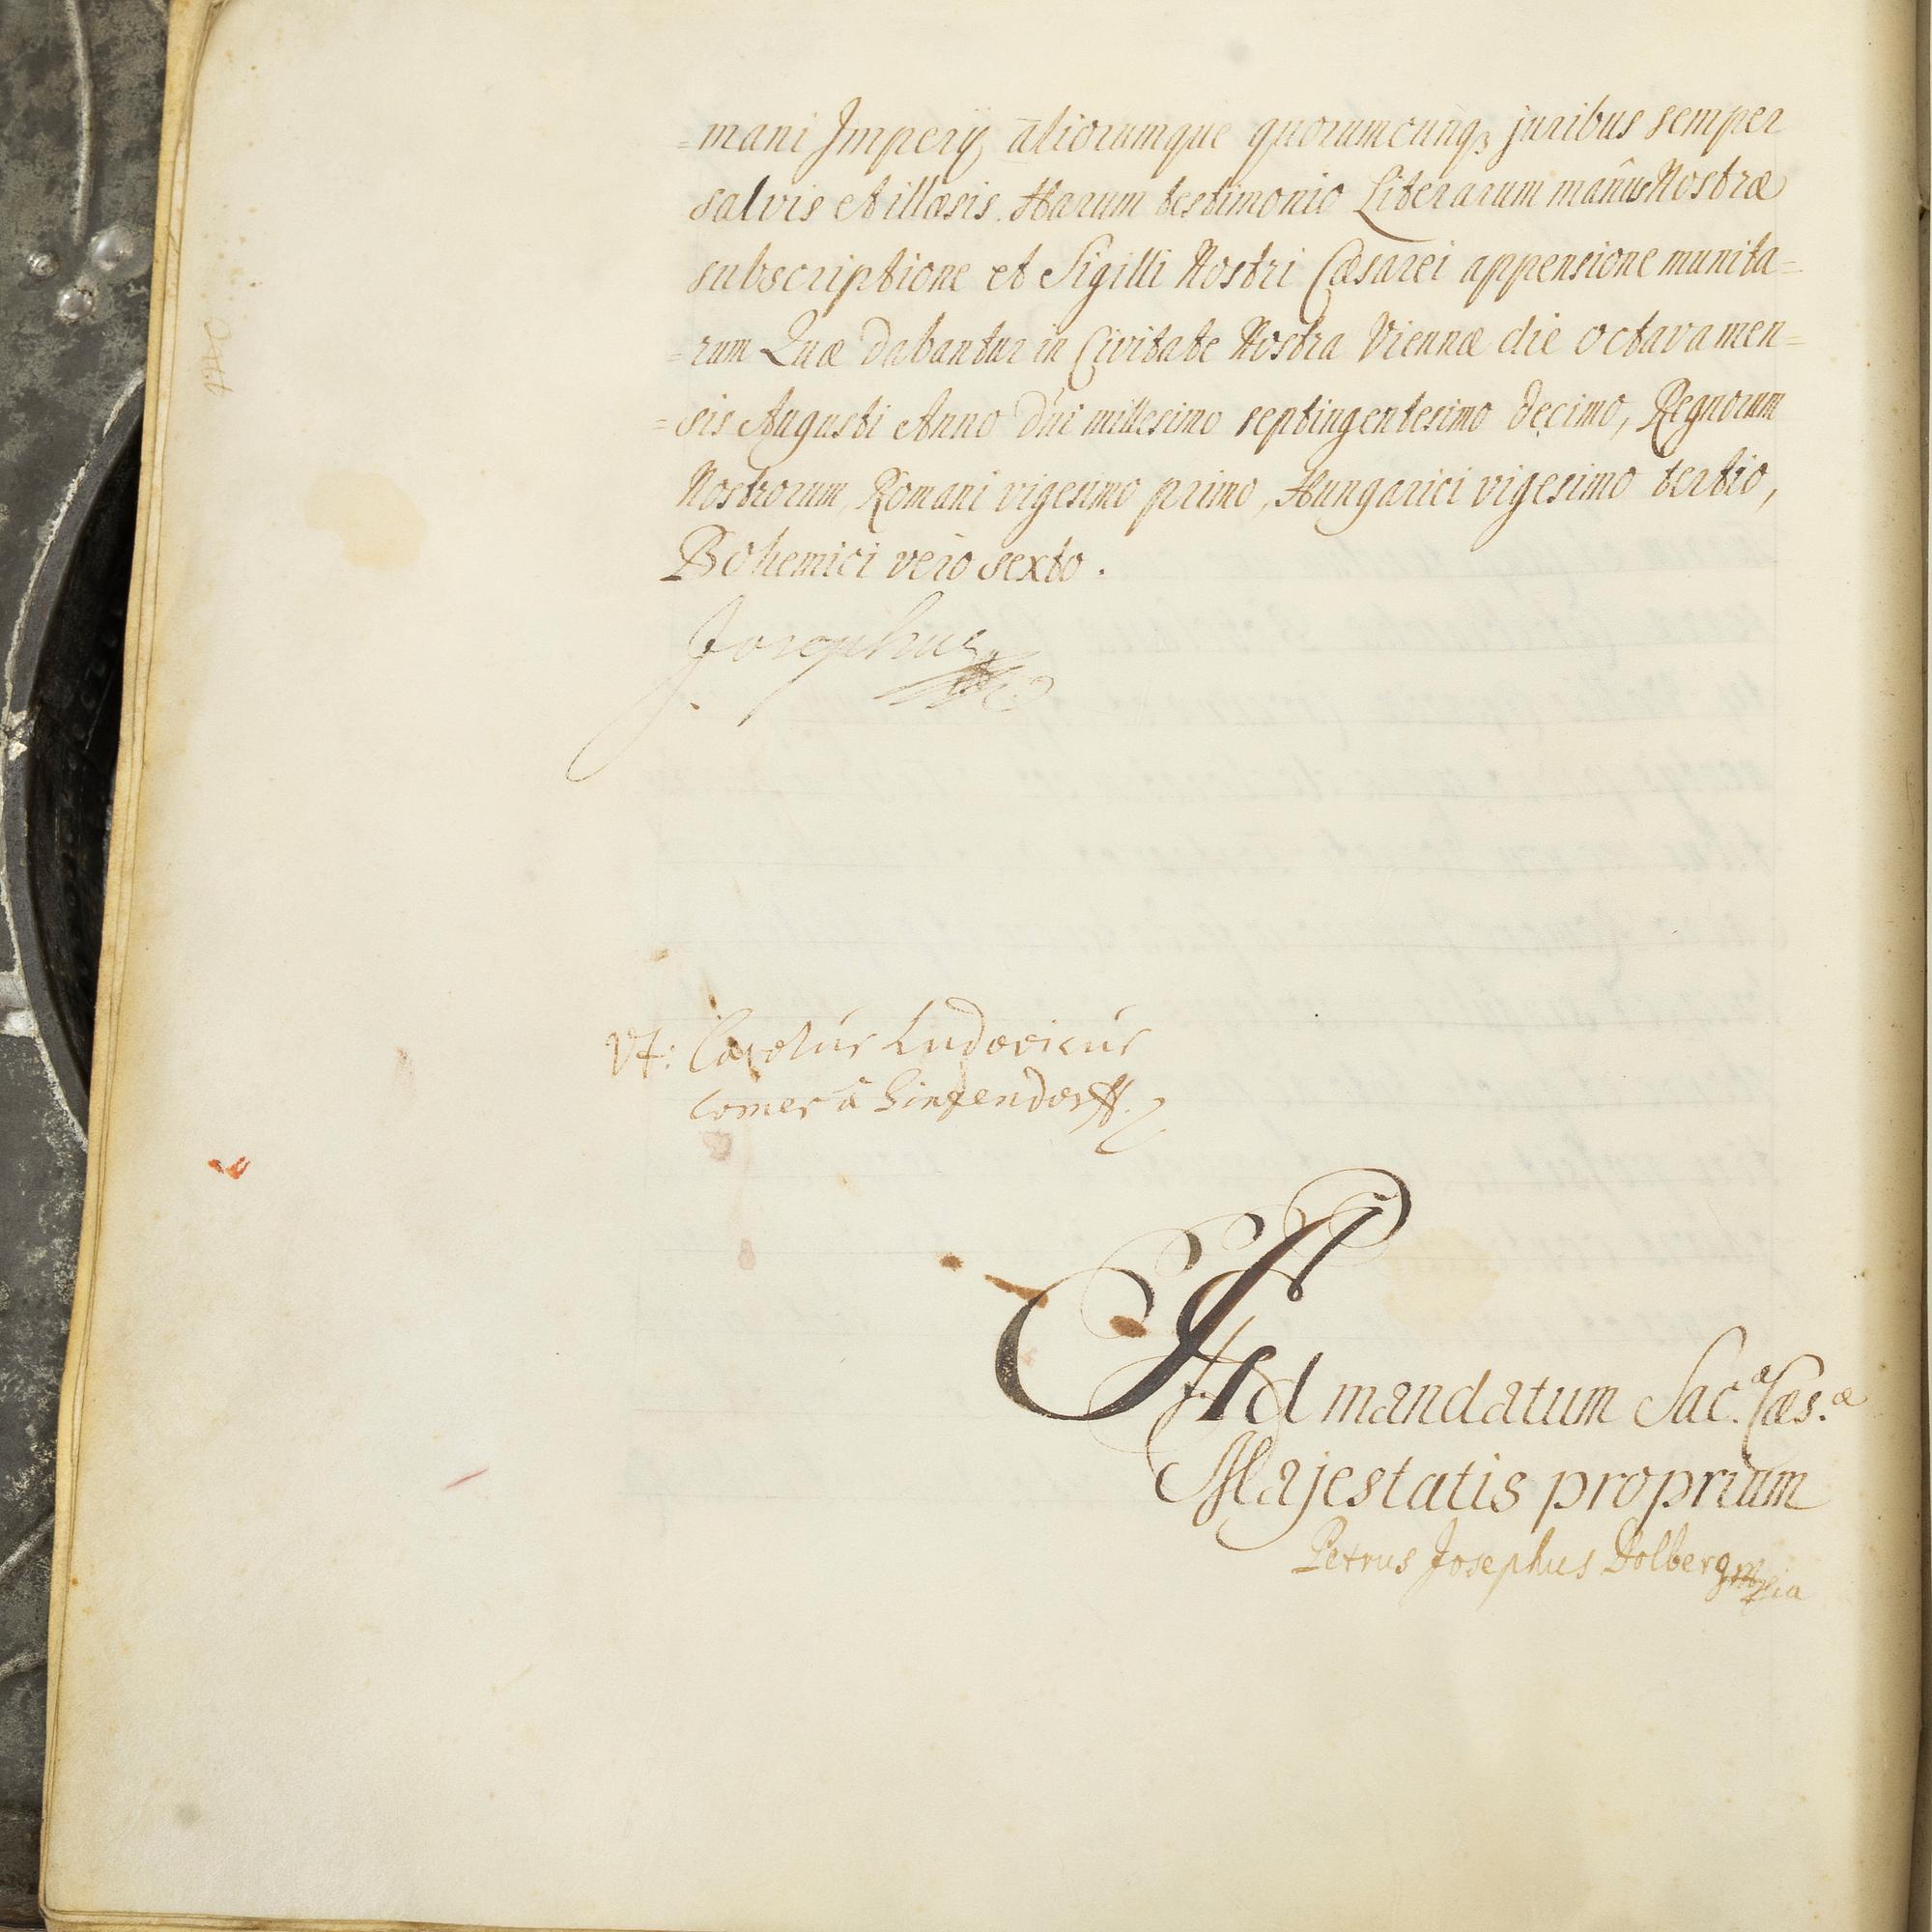 =mani Imperÿ, aliorumque quorumcunq₃ juribus semper
salvis et illæsis. Harum testimonio Literarum manûs Nostræ
subscriptione et Sigilli Nostri Cæsarei appensione munita=
=rum Quæ dabantur in Civitate Nostra Viennæ die octava men=
=sis Augusti Anno Dn̄i millesimo septingentesimo decimo, Regnorum
Nostrorum, Romani vigesimo primo, Hungarici vigesimo tertio,
Bohemici vero sexto.
Josephus
Vt: Carolus Ludovicus
comes à Sinzendorff.
Ad mandatum Sac.ᵃ Cæs.ᵃᵉ
Majestatis proprium
Petrus Josephus Dolberg mpia